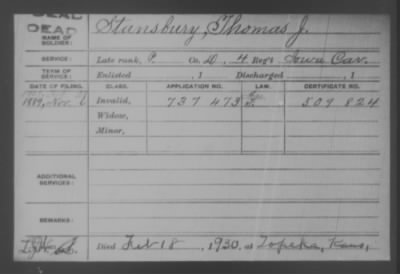 DEAD
DEAD
NAME OF SOLDIER: Stansbury, Thomas J.
SERVICE: Late rank, P. Co. D, 4 Reg't Iowa Cav.
TERM OF SERVICE: Enlisted , 1 Discharged , 1
DATE OF FILING. CLASS. APPLICATION NO. LAW. CERTIFICATE NO.
1889, Nov Invalid, 737 473 509 824
Widow,
Minor,
ADDITIONAL SERVICES:
REMARKS:
Died Feb 18, 1930, at Topeka, Kans,